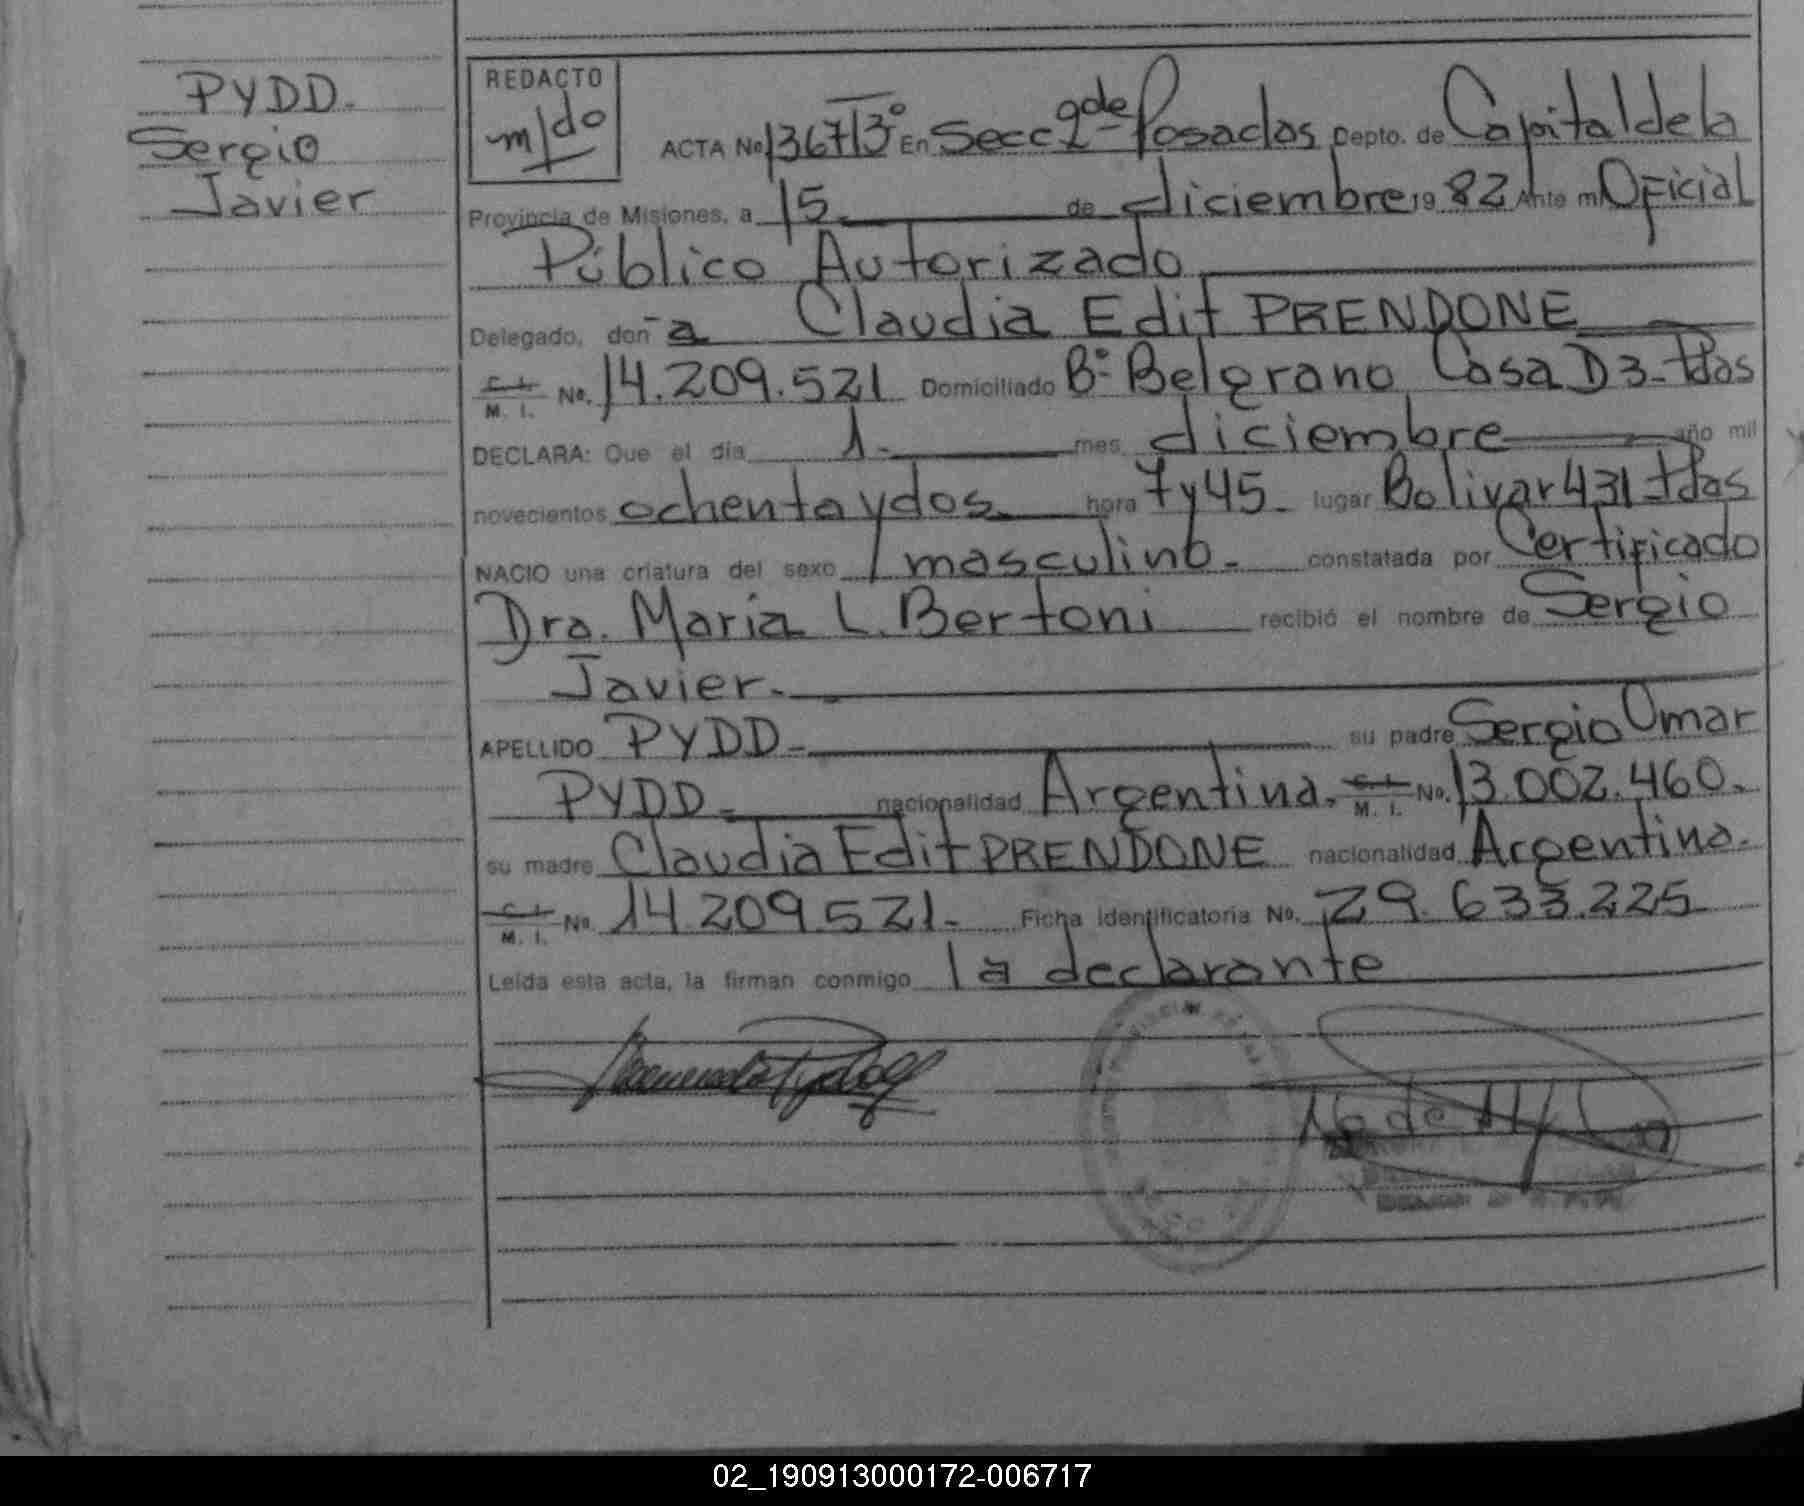 PYDD.
Sergio
Javier
REDACTO
m/do
ACTA No 1367 T3° En Secc 2da de Posadas Depto. de Capital de la
Provincia de Misiones, a 15 de diciembre 19 82 Ante mí Oficial
Público Autorizado
Delegado, don a Claudia Edit PRENDONE
C. I. M. I. No. 14.209.521 Domiciliado B° Belgrano Casa D3 - Pdas
DECLARA: Que el día 1 - mes diciembre año mil
novecientos ochenta y dos - hora 7 y 45 - lugar Bolivar 431 - Pdas
NACIO una criatura del sexo masculino - constatada por Certificado
Dra. Maria L. Bertoni recibió el nombre de Sergio
Javier -
APELLIDO PYDD - su padre Sergio Omar
PYDD - nacionalidad Argentina. C. I. M. I. No. 13.002.460 -
su madre Claudia Edit PRENDONE nacionalidad Argentina.
C. I. M. I. No. 14.209.521 - Ficha identificatoria No. 29.633.225
Leída esta acta, la firman conmigo la declarante
02_190913000172-006717